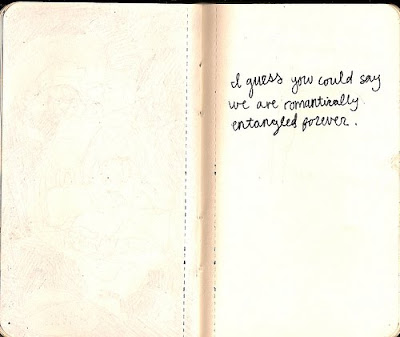 I guess you could say
we are romantically
entangled forever.